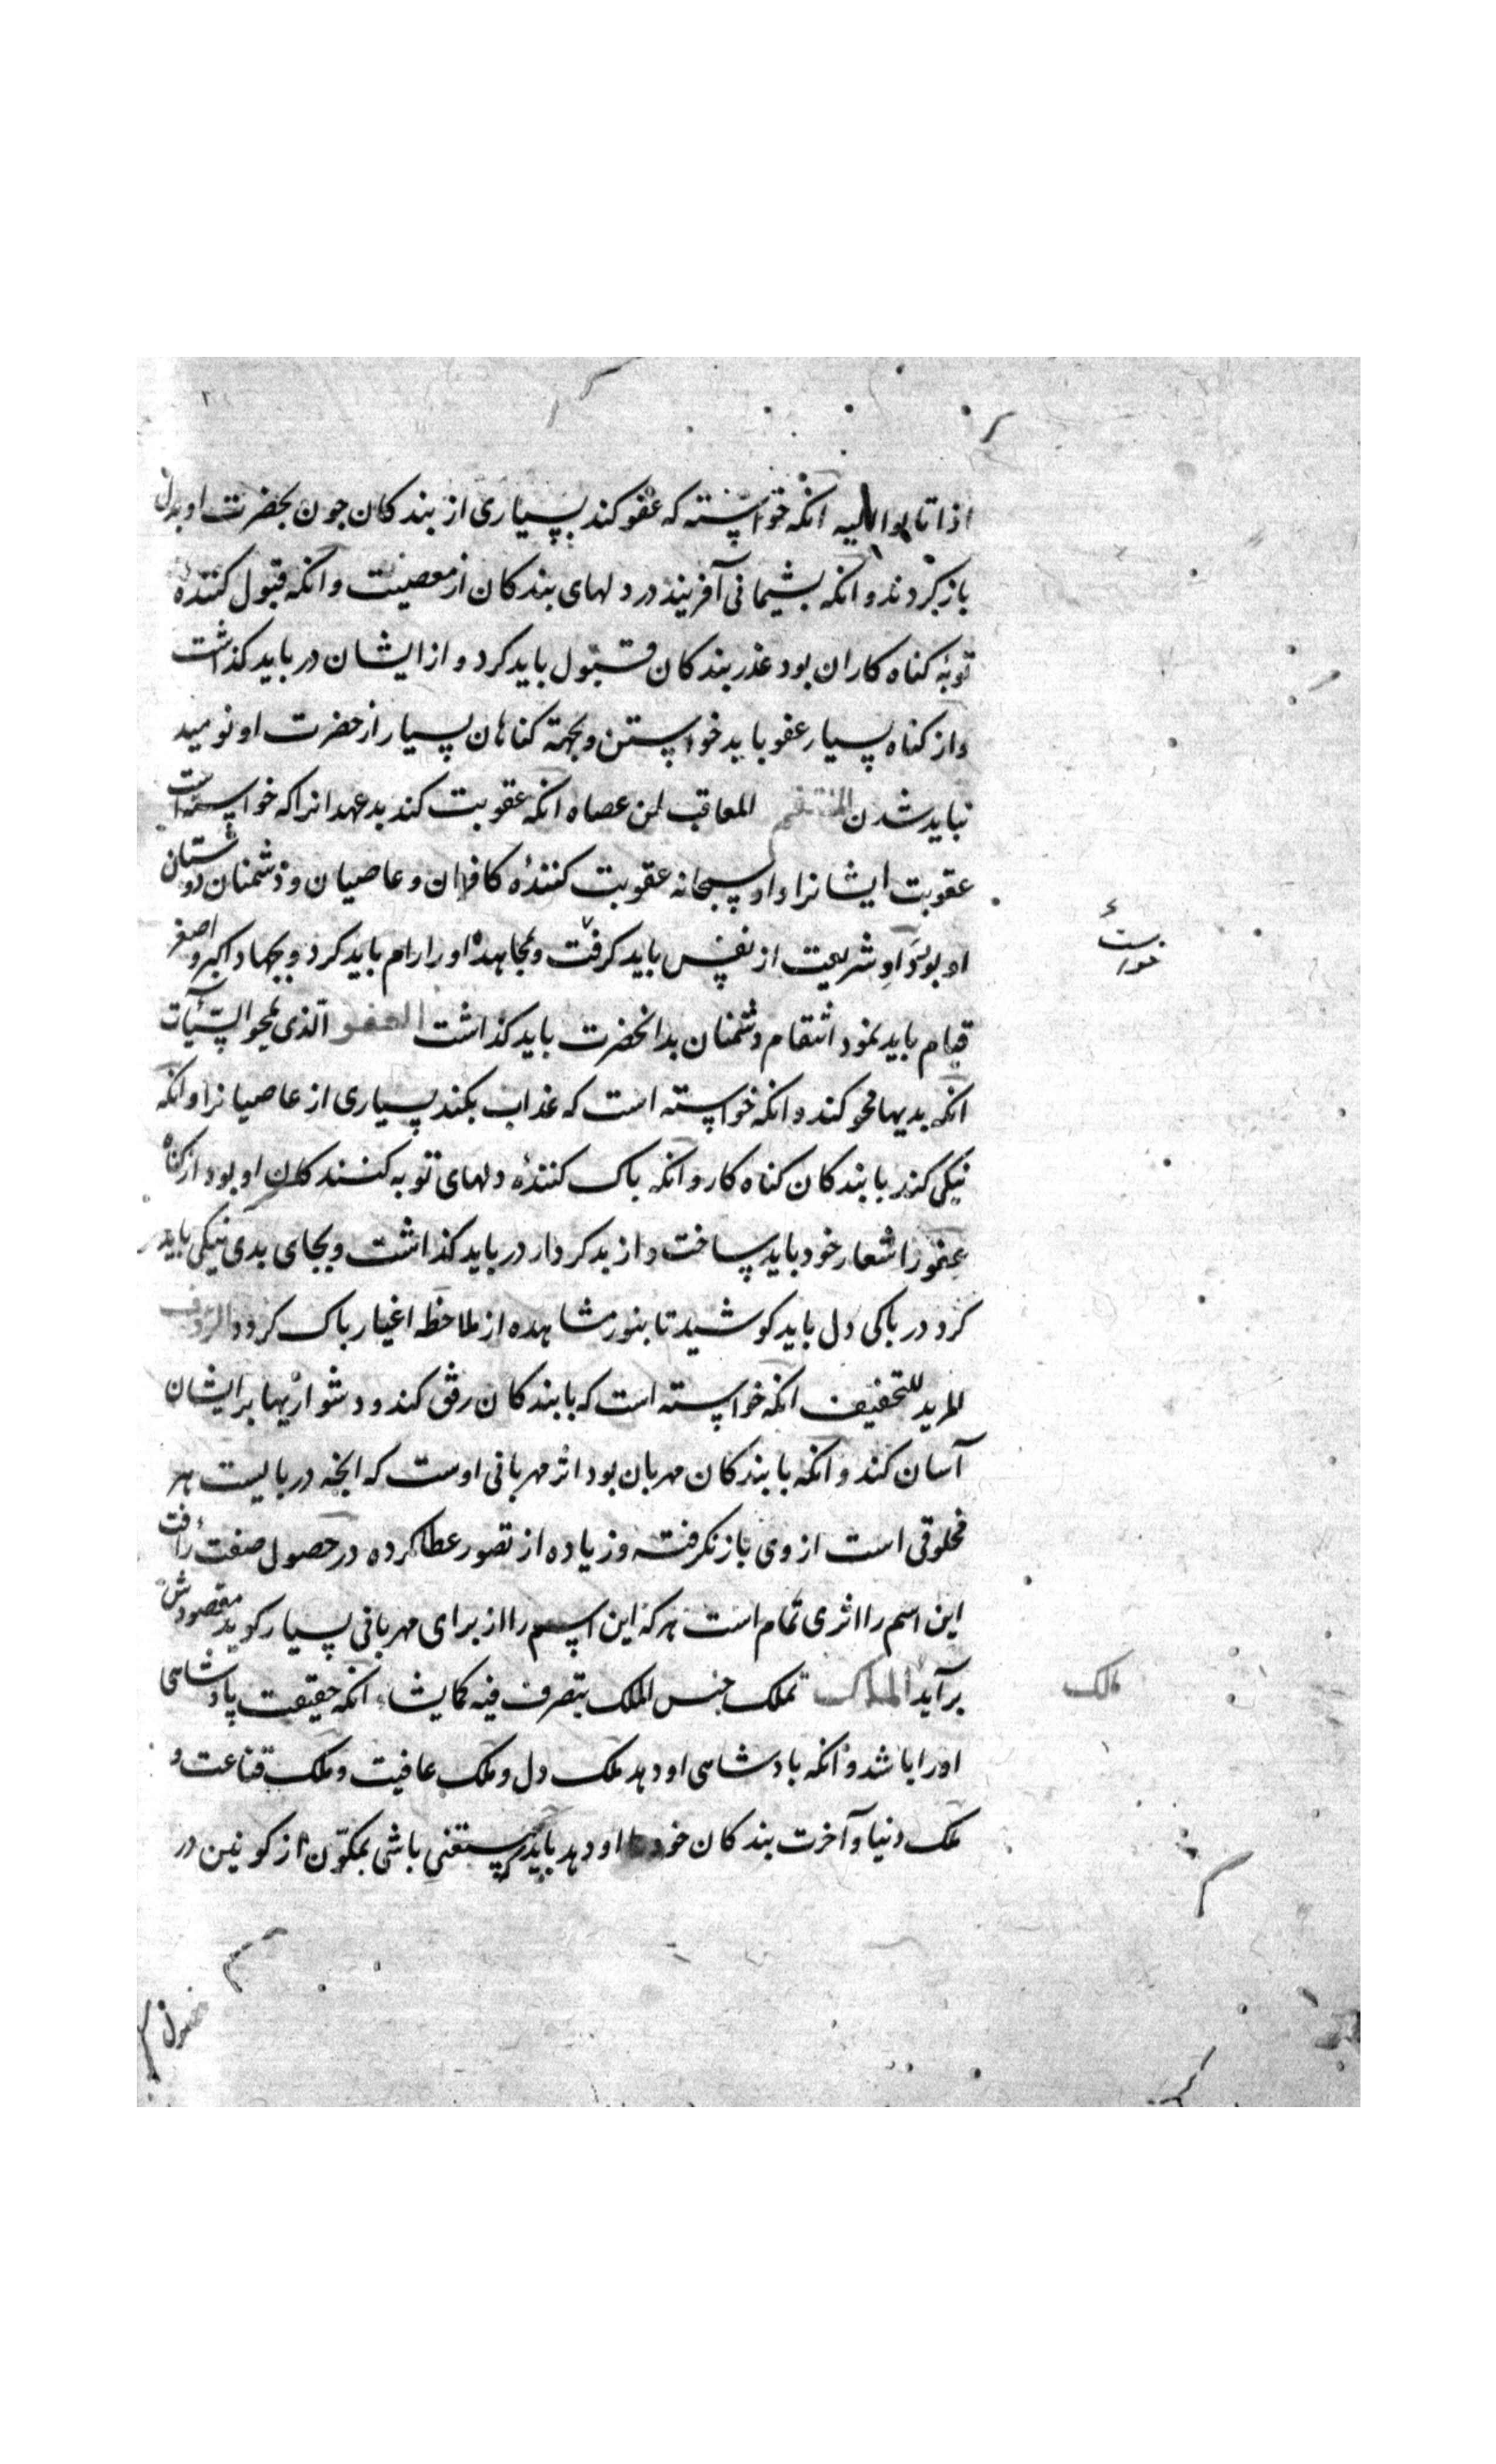 اذا تابوا الیه انکه خواسته که عفو کند بسیاری از بندکان جون بحضرت او بدل
باز کردند و انکه بشیمانی آفریند در دلهای بندکان از معصیت و انکه قبول کننده
توبهٔ کناه کاران بود عذر بندکان قبول باید کرد و از ایشان در باید کذاشت
و از کناه بسیار عفو باید خواستن و بجهة کناهان بسیار از حضرت او نومید
نباید شدن المنتقم المعاقب لمن عصاه انکه عقوبت کند بدعهدانرا که خواسته است
عقوبت ایشانرا و او سبحانه عقوبت کنندهٔ کافران و عاصیان و دشمنان دوستان
او بود داد شریعت از نفس باید کرفت و بمجاهده او را رام باید کرد و بجهاد اکبر و اصغر
قیام باید نمود انتقام دشمنان بدانحضرت باید کذاشت العفو الذی یمحو السّیّآت
انکه بدیها محو کند و انکه خواسته است که عذاب نکند بسیاری از عاصیانرا و انکه
نیکی کند با بندکان کناه کار و انکه باک کنندهٔ دلهای توبه کنندکان او بود از کناه
عفو را شعار خود باید ساخت و از بدکردار در باید کذاشت و بجای بدی نیکی باید
کرد در باکی دل باید کوشید تا بنور مشاهده از ملاحظه اغیار باک کردد الرؤف
المرید للتخفیف انکه خواسته است که با بندکان رفق کند و دشواریها بر ایشان
آسان کند و انکه با بندکان مهربان بود اثر مهربانی اوست که انجه دربایست هر
مخلوقی است از وی باز نکرفته و زیاده از تصور عطا کرده در حصول صفت رأفت
این اسم را اثری تمام است هر که این اسم را از برای مهربانی بسیار کوید مقصودش
برآید الملک تملک جنس الملک یتصرف فیه کما یشاء انکه حقیقت پادشاهی
او را باشد و انکه بادشاهی او دهد ملک دل و ملک عافیت و ملک قناعت و
ملک دنیا و آخرت بندکان خود را او دهد باید که مستغنی باشی بمکوّن از کونین در
مالک